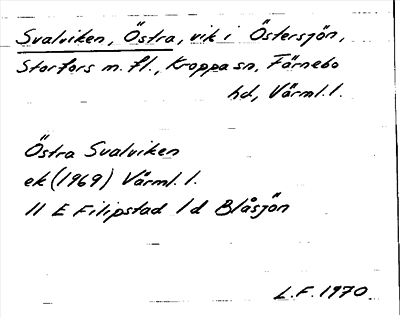 Svalviken, Östra, vik i Östersjön,
Storfors m. fl., Kroppa sn, Färnebo
hd, Värml. l.
Östra Svalviken
ek (1969) Värml. l.
11 E Filipstad 1 d Blåsjön
L.F. 1970